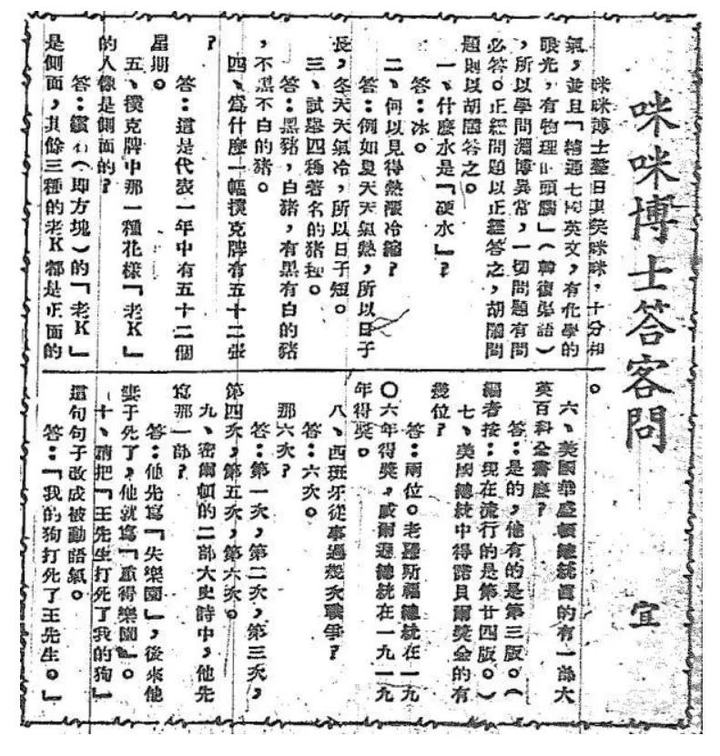 咪咪博士答客問
宜
咪咪博士整日嘻笑咪咪，十分和
氣，並且「精通七國英文，有化學的
眼光，有物理的頭腦」（韓復榘語）
，所以學問淵博異常，一切問題有問
必答。正經問題以正經答之，胡鬧問
題則以胡鬧答之。
一、什麼水是「硬水」？
答：冰。
二、何以見得熱漲冷縮？
答：例如夏天天氣熱，所以日子
長，冬天天氣冷，所以日子短。
三、試舉四種著名的豬種。
答：黑豬，白豬，有黑有白的豬
，不黑不白的豬。
四、爲什麼一幅撲克牌有五十二張
？
答：這是代表一年中有五十二個
星期。
五、撲克牌中那一種花樣「老K」
的人像是側面的？
答：鑽石（即方塊）的「老K」
是側面，其餘三種的老K都是正面的
。
六、美國華盛頓總統眞的有一部大
英百科全書麼？
答：是的，他有的是第三版。（
編者按：現在流行的是第廿四版。）
七、美國總統中得諾貝爾獎金的有
幾位？
答：兩位。老羅斯福總統在一九
〇六年得獎，威爾遜總統在一九一九
年得獎。
八、西班牙從事過幾次戰爭？
答：六次。
那六次？
答：第一次，第二次，第三次，
第四次，第五次，第六次。
九、密爾頓的二部大史詩中，他先
寫那一部？
答：他先寫「失樂園」，後來他
妻子死了，他就寫「重得樂園」。
十、請把「王先生打死了我的狗」
這句句子改成被動語氣。
答：「我的狗打死了王先生。」